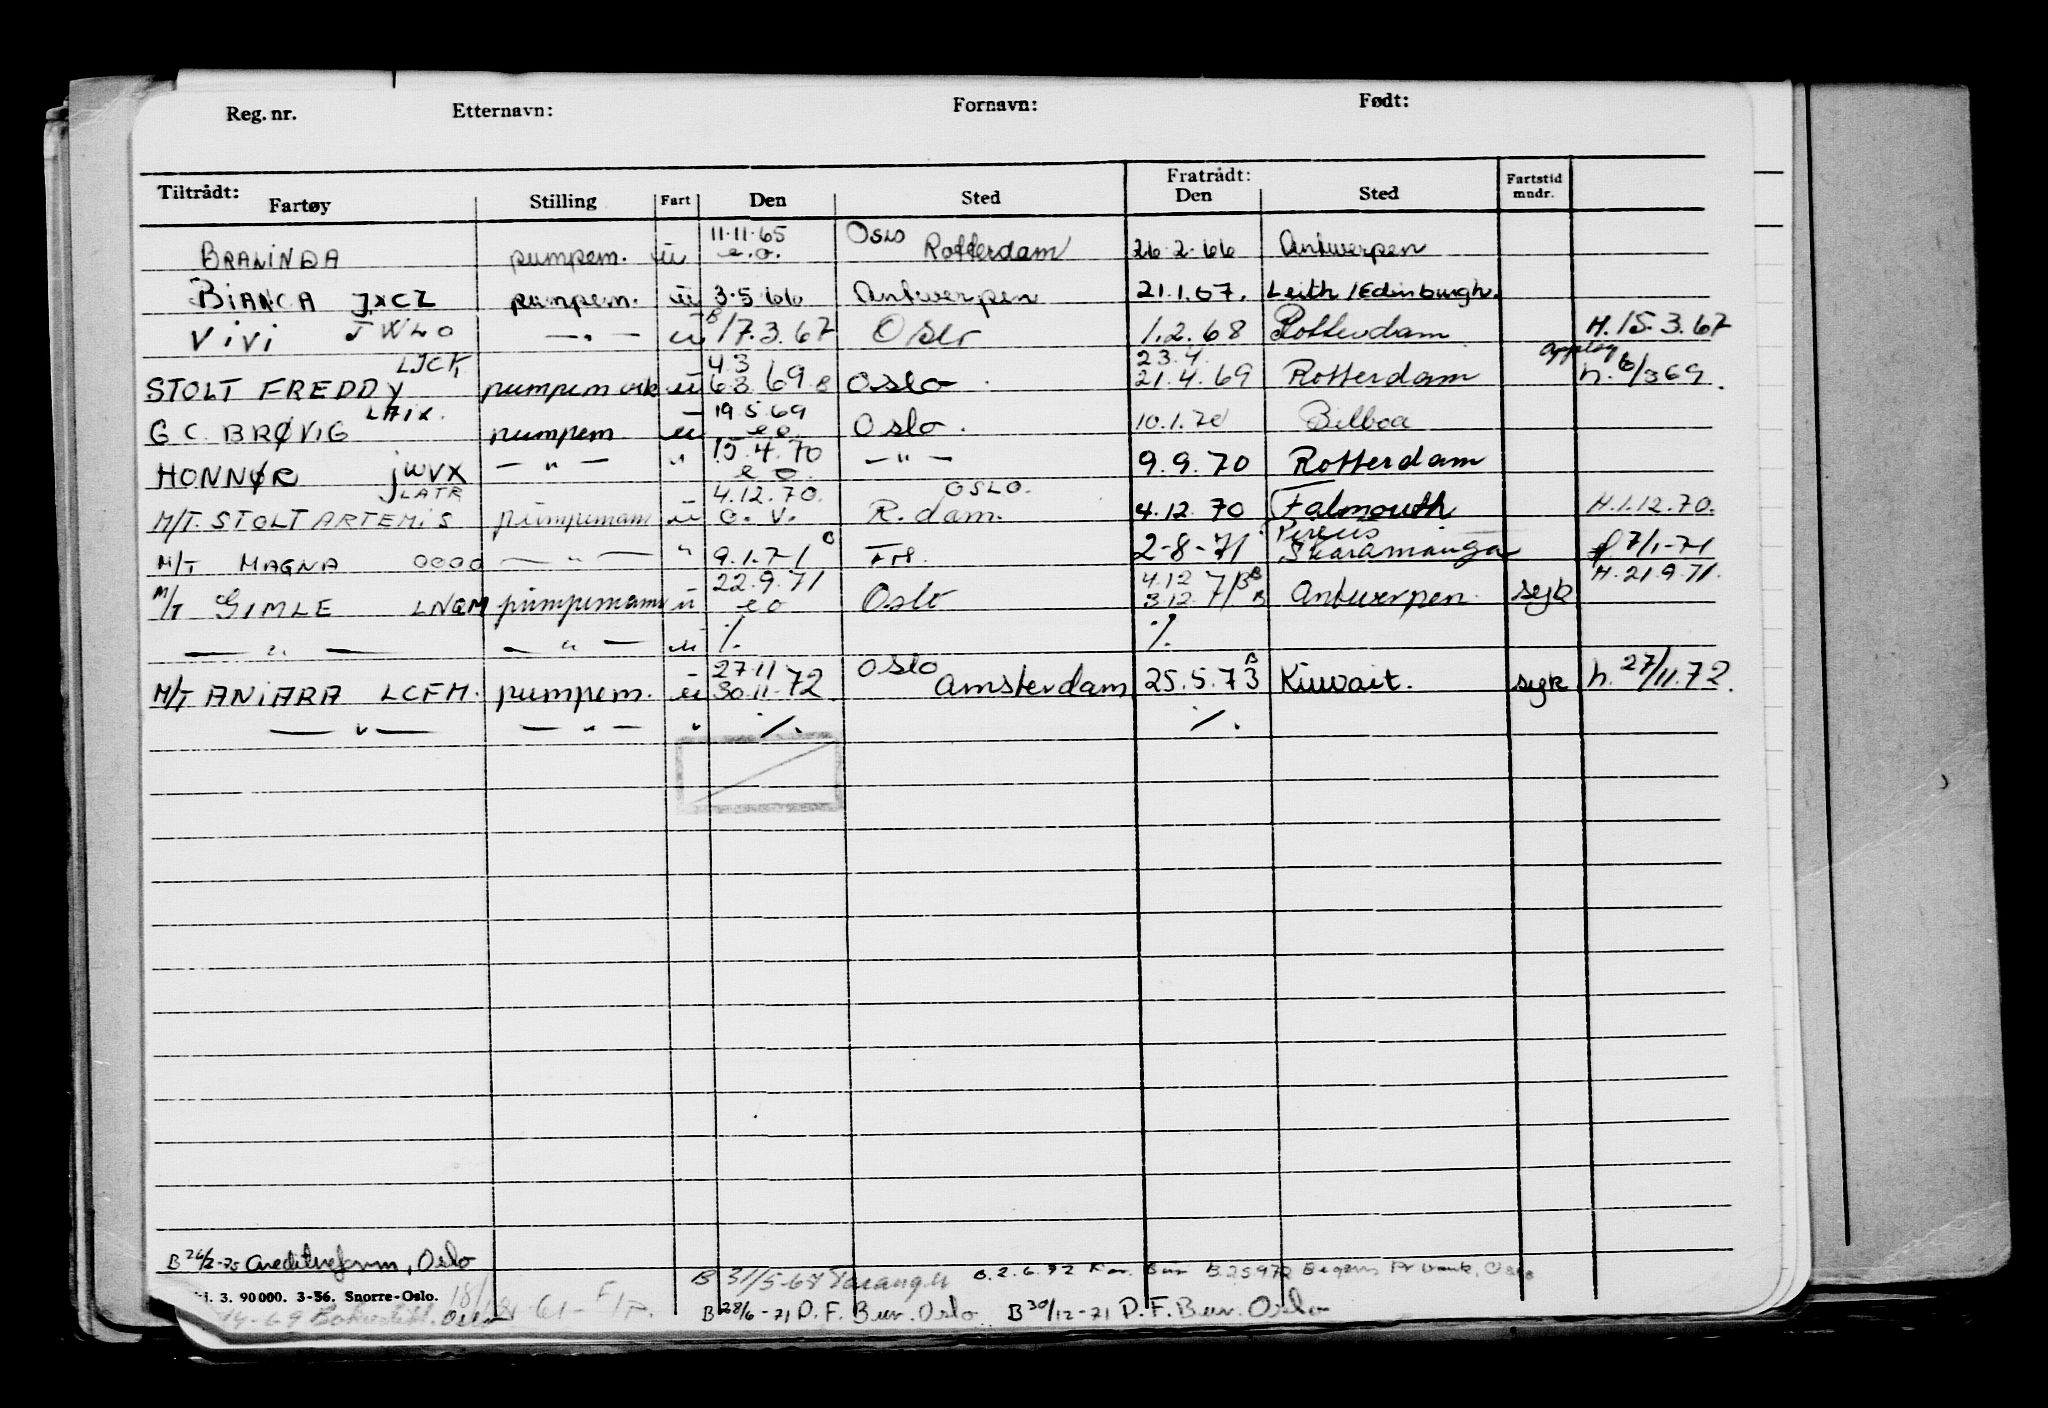 Reg. nr. Etternavn: Fornavn: Født:
Tiltrådt: Fratrådt: Fartstid
Fartøy Stilling Fart Den Sted Den Sted mndr.
11.11.65 Oslo
BRALINDA pumpem. ū e.o. Rotterdam 26.2.66 Antwerpen
BIANCA JXCZ pumpem. ū 3.5.66 Antwerpen 21.1.67. Leith/Edinburgh.
ViVi JWLO — „ — ū B 17.3.67 Oslo 1.2.68 Rotterdam H. 15.3.67
LJCK 4.3 23.4. opplag
STOLT FREDDY pumpem ū 6.3.69 Oslo 21.4.69 Rotterdam h. 6/3 69.
LAIX. 19.5.69
G C. BRØVIG pumpem ū e.o. Oslo. 10.1.70 Bilboa
15.4.70
HONNØR JWVX — " — " e o — " — 9.9.70 Rotterdam
LATR 4.12.70. OSLO.
M/T. STOLT ARTEMIS pumpemann ū o. v. R.dam. 4.12.70 Falmouth H.1.12.70.
Pireus
M/T MAGNA OOOO — " — " 9.1.71 2-8-71 Skaramanga 7/1-71
22.9.71 4.12 H. 21.9.71.
M/T GIMLE LNGM pumpemann ū e o Oslo 3.12.71 B Antwerpen syk
— " — — " — ū ./. ./.
27.11 Oslo B
M/T ANIARA LCFM. pumpem. ū 30.11.72 Amsterdam 25.5.73 Kuwait. syk h. 27/11.72.
— " — — " — " ./. ./.
B 26/2-75 Creditreform, Oslo
B 31/5-67 B. 2.6.72 B. 25972 bank, Oslo
3. 90 000. 3-56. Snorre-Oslo.
B 28/6-71 P. F. Bur. Oslo B 30/12-71 P. F. Bur. Oslo